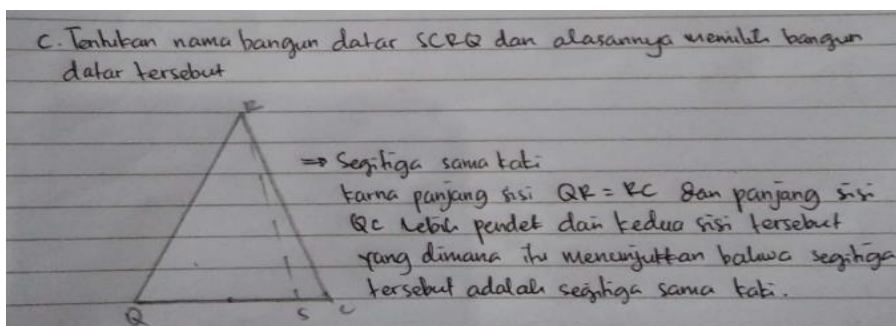 C. Tentukan nama bangun datar SCRQ dan alasannya memilih bangun
datar tersebut
R
⇒ Segitiga sama kaki
karna panjang sisi QR = RC dan panjang sisi
QC lebih pendek dari kedua sisi tersebut
yang dimana itu menunjukkan bahwa segitiga
tersebut adalah segitiga sama kaki.
Q S C